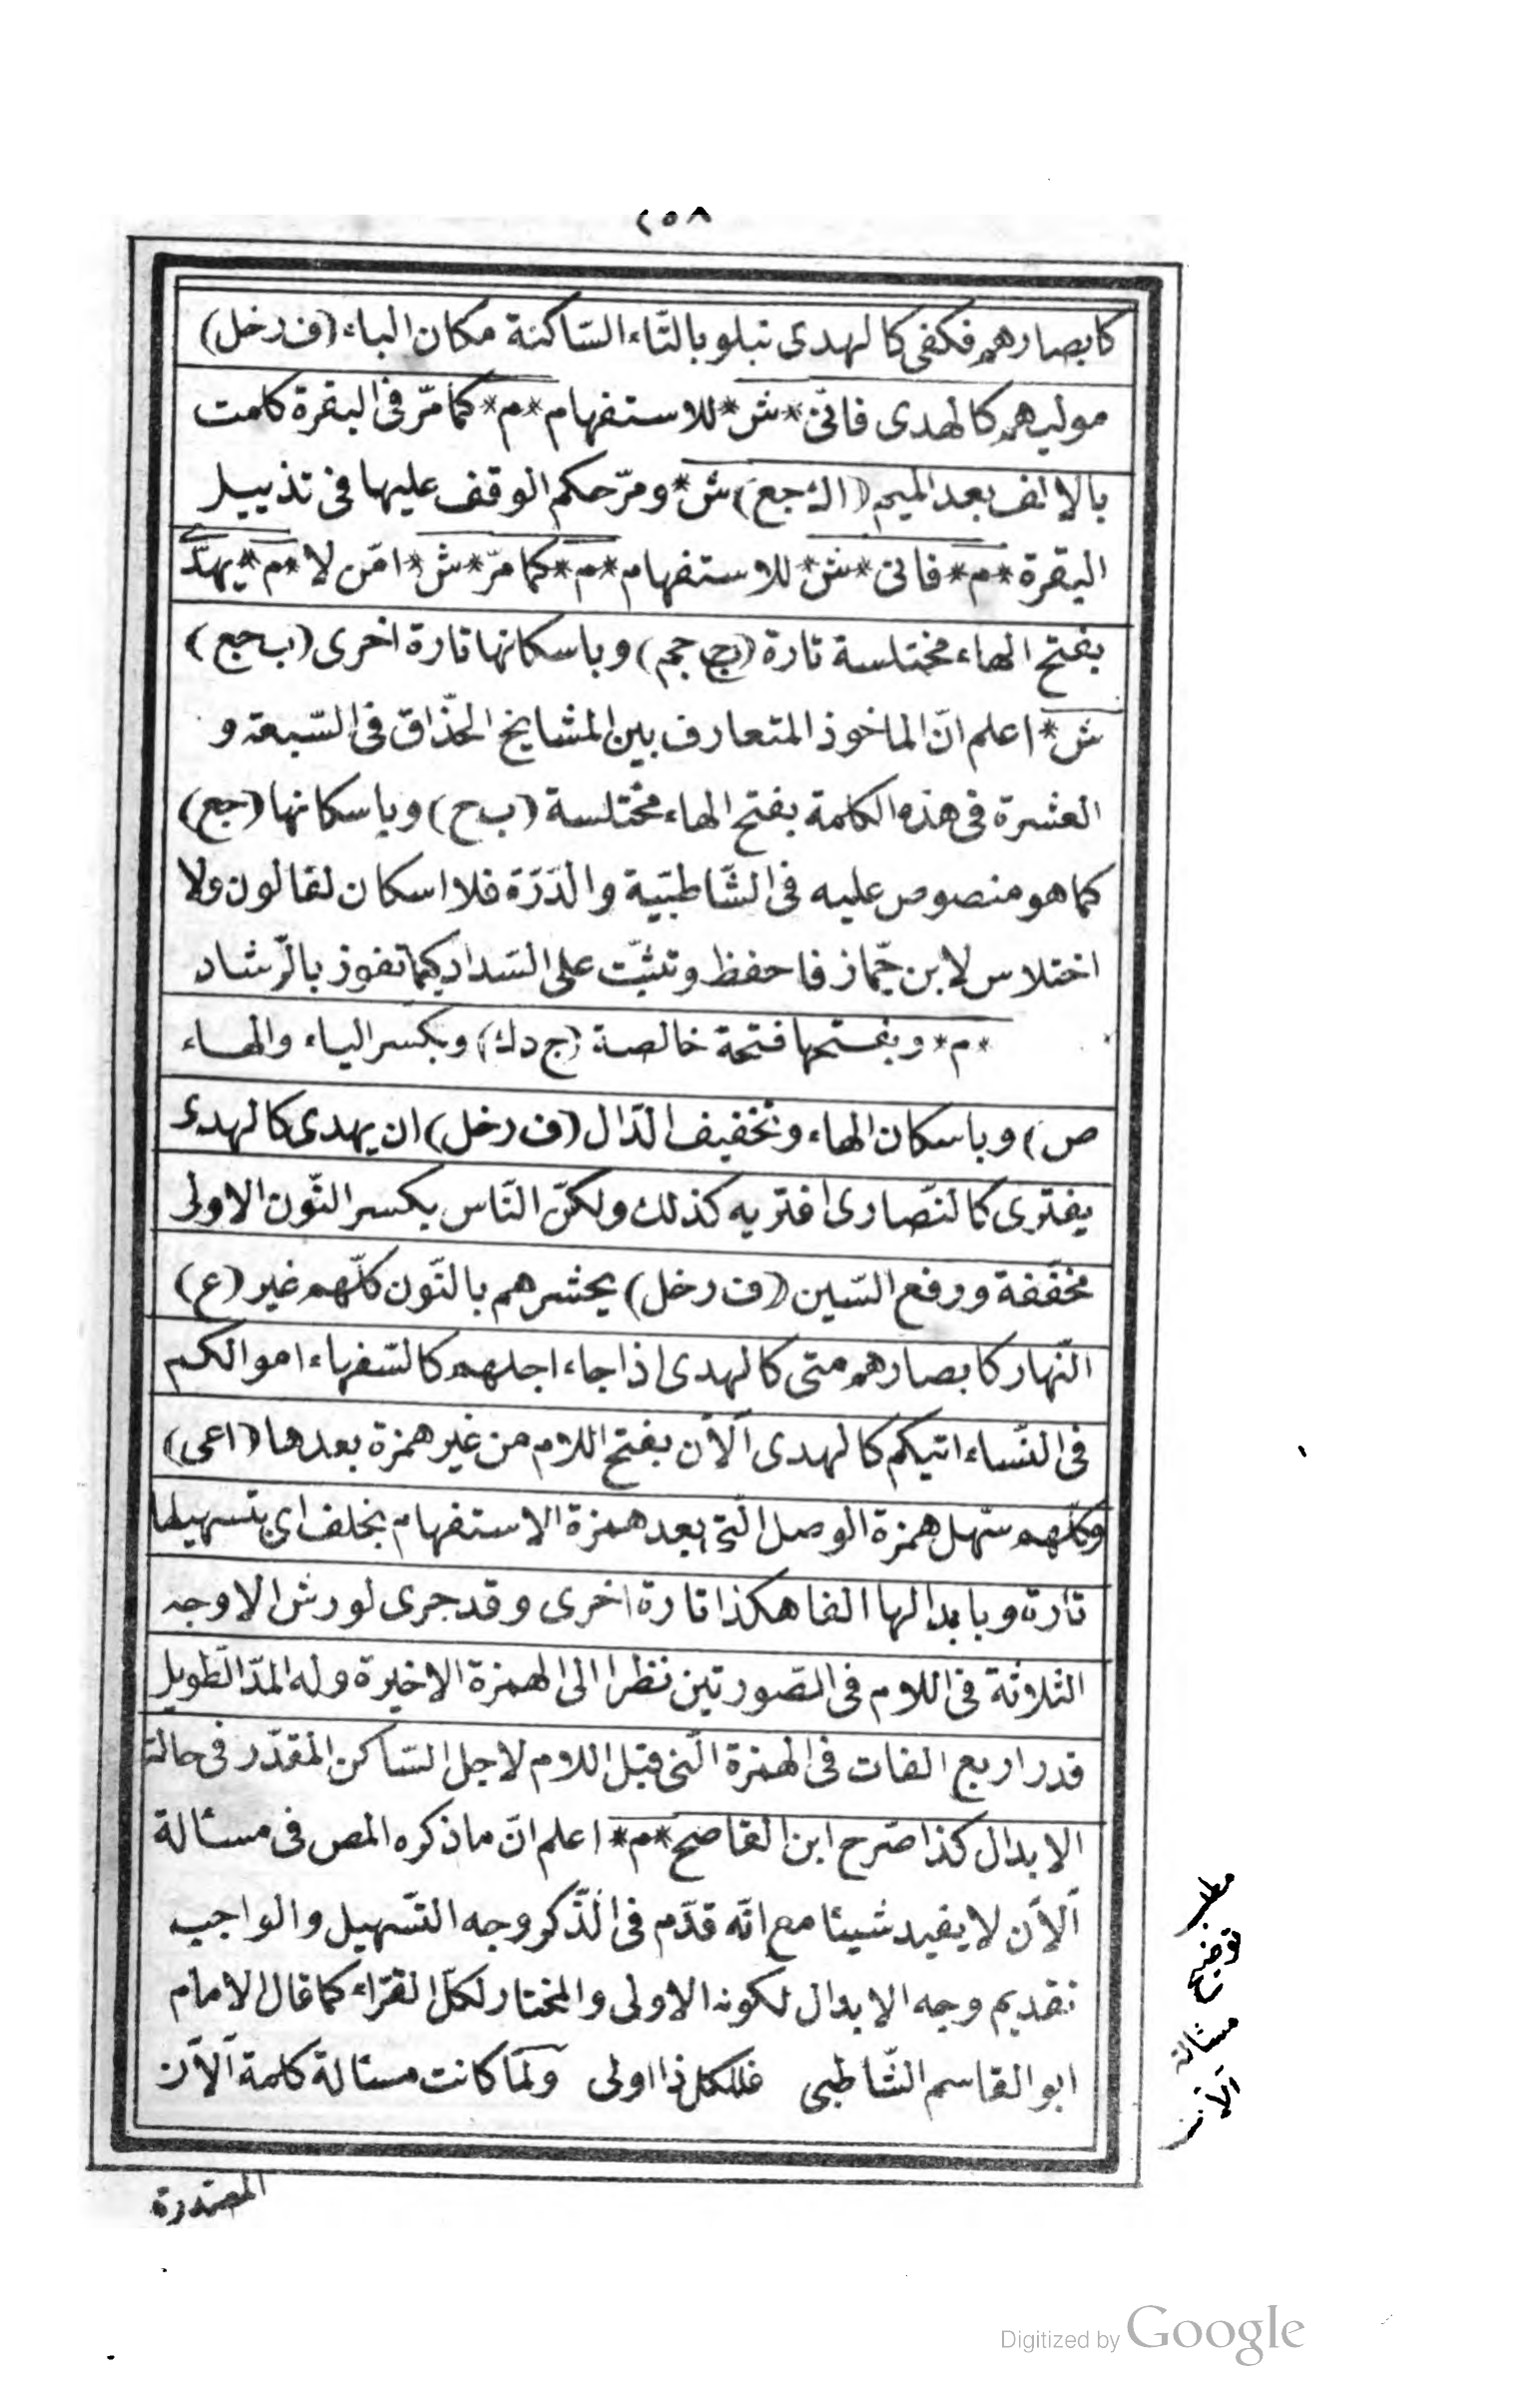 ٢٥٨
كابصارهم فكفى كالهدى تبلو بالتّاء السّاكنة مكان الباء (ف رخل)
موليهم كالهدى فانّى *ش* للاستفهام *م* كما مرّ فى البقرة كلمت
بالالف بعد الميم (اك جع) ش* ومرّ حكم الوقف عليها فى تذييل
البقرة *م* فانى *ش* للاستفهام *م* كما مرّ *ش* امّن لا *م* يهدّى
بفتح الهاء مختلسة تارة (بح جم) وباسكانها تارة اخرى (ب جع)
ش* اعلم انّ الماخوذ المتعارف بين المشايخ الحذّاق فى السّبعة و
العشرة فى هذه الكلمة بفتح الهاء مختلسة (ب ح) وباسكانها (جع)
كما هو منصوص عليه فى الشّاطبيّة والدّرّة فلا اسكان لقالون ولا
اختلاس لابن جمّاز فاحفظ وتثبّت على السّداد كيما تفوز بالرّشاد
*م* وبفتحها فتحة خالصة (ج دك) وبكسر الياء والهاء
ص) وباسكان الهاء وتخفيف الدّال (ف رخل) ان يهدى كالهدى
يفترى كالنّصارى افتريه كذلك ولكنّ النّاس بكسر النّون الاولى
مخفّفة ورفع السّين (ف رخل) يحشرهم بالنّون كلّهم غير (ع)
النّهار كابصارهم متى كالهدى اذا جاء اجلهم كالسّفهاء اموالكم
فى النّساء اتيكم كالهدى آلآن بفتح اللام من غير همزة بعدها (اعى)
وكلّهم سّهل همزة الوصل الّتى بعد همزة الاستفهام بخلف اى بتسهيلها
تارة وبابدالها الفا هكذا تارة اخرى وقد جرى لورش الاوجه
الثلاثة فى اللام فى الصّورتين نظرا الى الهمزة الاخيرة وله المدّ الطّويل
قدر اربع الفات فى الهمزة الّتى قبل اللام لاجل السّاكن المقدّر فى حالة
الابدال كذا صّرح ابن القاصح *م* اعلم انّ ما ذكره المص فى مسئالة
آلآن لا يفيد شيئا مع انّه قدّم فى الذّكر وجه التّسهيل والواجب
تقديم وجه الابدال لكونه الاولى والمختار لكلّ القرّاء كما قال الامام
ابو القاسم الشّاطبى فللكل ذا اولى ولمّا كانت مسئالة كلمة آلآن
مطلب
توضيح
مسئالة
آلآن